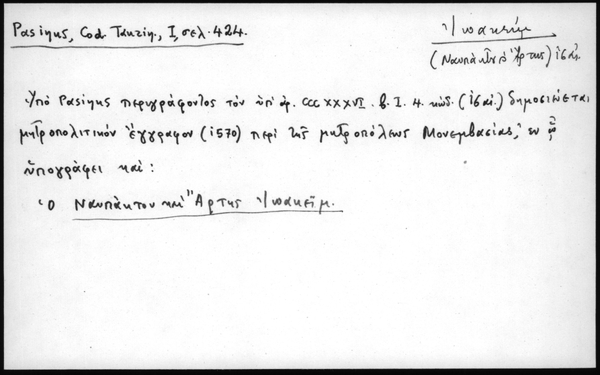 Pasinus, Cod. Taurin., I, σελ. 424.
Ἰωακείμ
(Ναυπάκτου & Ἄρτης) ις´ αἰ.
Ὑπὸ Pasinus περιγράφοντος τὸν ὑπ' ἀρ. CCCXXXVI. b. I. 4. κώδ. (ις´ αἰ.) δημοσιεύεται
μητροπολιτικόν ἔγγραφον (1570) περὶ τῆς μητροπόλεως Μονεμβασίας, ἐν ᾧ
ὑπογράφει καί:
Ὁ Ναυπάκτου καὶ Ἄρτης Ἰωακείμ.